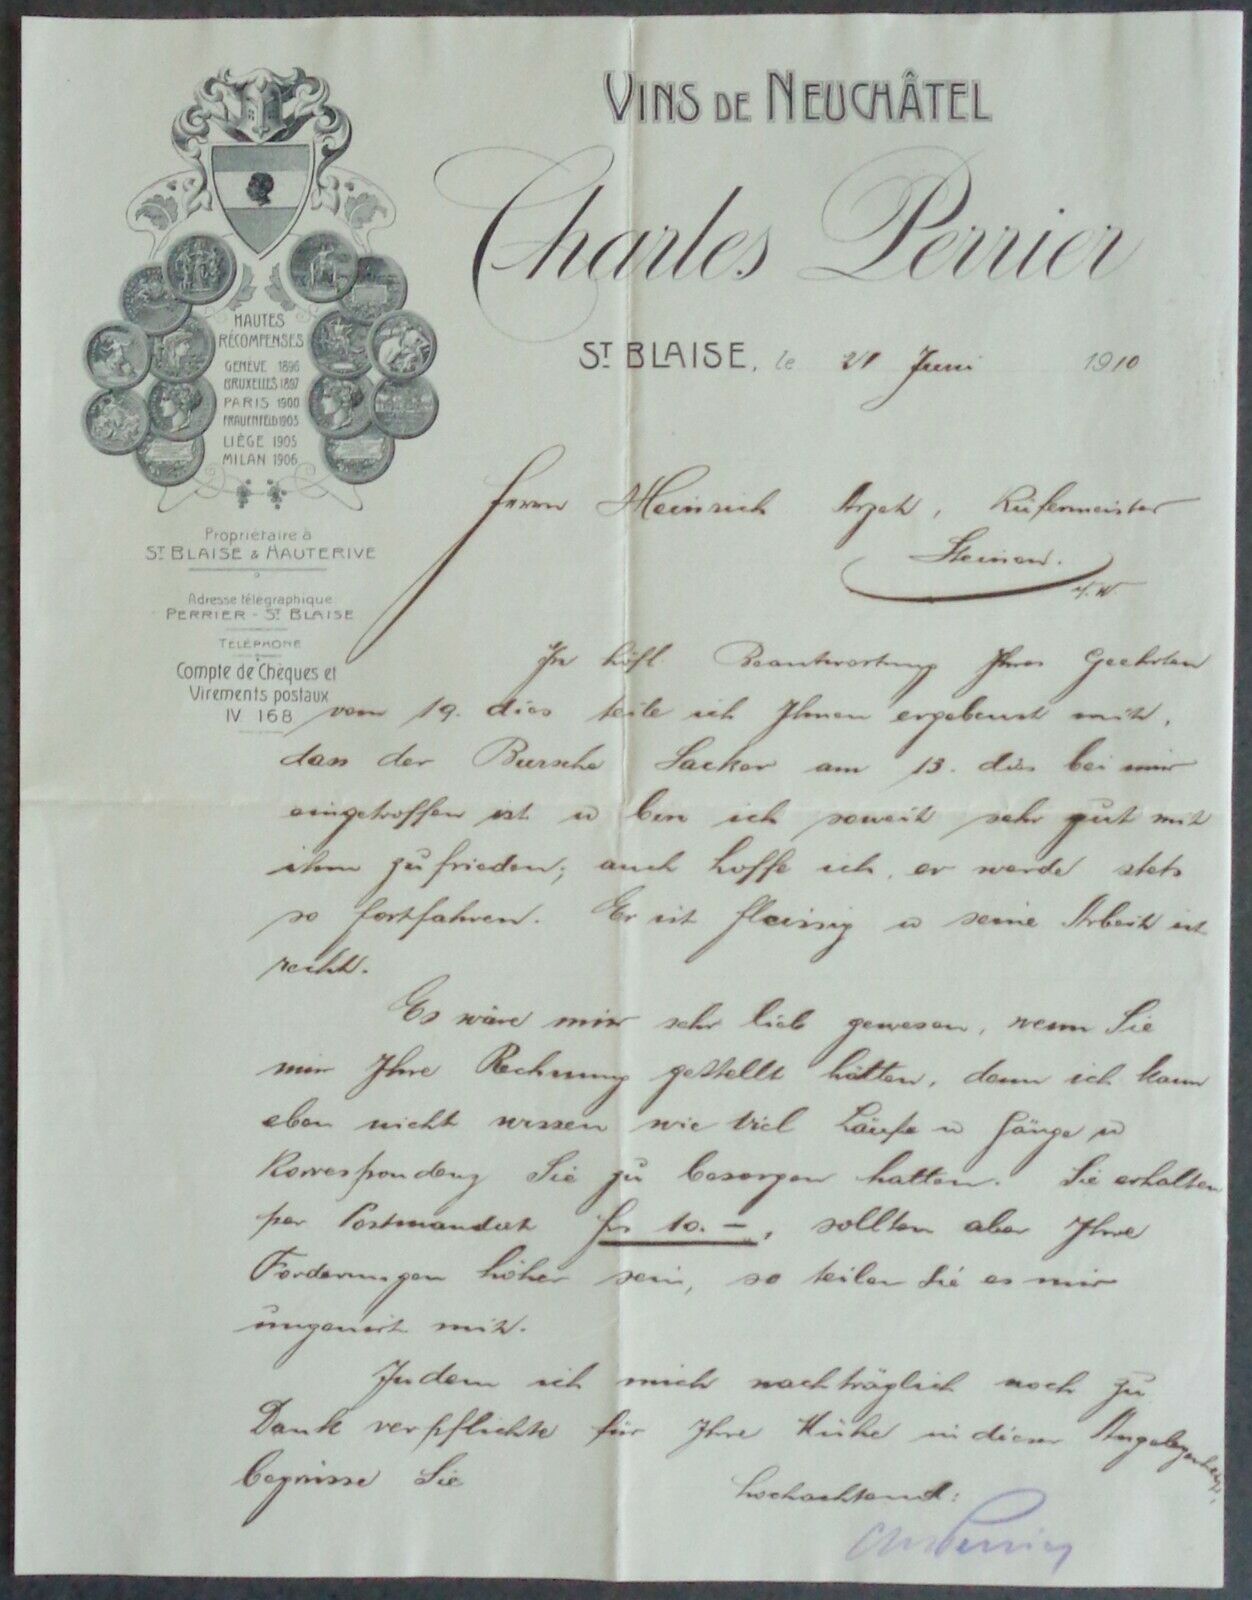 VINS DE NEUCHÂTEL
Charles Perrier
ST BLAISE, le 21 Juni 1910
HAUTES
RÉCOMPENSES
GENÈVE 1896
BRUXELLES 1897
PARIS 1900
FRAUENFELD 1903
LIÈGE 1905
MILAN 1906
Propriétaire à
ST BLAISE & HAUTERIVE
Adresse télégraphique
PERRIER - ST BLAISE
TÉLÉPHONE
Compte de Chèques et
Virements postaux
IV 168
Herrn Heinrich Küfermeister
Steinen.
In höfl Beantwortung Ihres Geehrten
vom 19. dies teile ich Ihnen ergebenst mit,
dass der Bursche Sacker am 13. dies bei mir
eingetroffen ist u bin ich soweit sehr gut mit
ihm zufrieden; auch hoffe ich, er werde stets
so fortfahren. Er ist fleissig u seine Arbeit ist
recht.
Es wäre mir sehr lieb gewesen, wenn Sie
mir Ihre Rechnung gestellt hätten, denn ich kann
eben nicht wissen wie viel Läufe u Gänge u
Korrespondenz Sie zu besorgen hatten. Sie erhalten
per Postmandat frs 10.-, sollten aber Ihre
Forderungen höher sein, so teilen Sie es mir
ungeniert mit.
Indem ich mich nachträglich noch zu
Dank verpflichte für Ihre Mühe in dieser Angelegenheit,
begrüsse Sie
hochachtend:
Ch Perrier